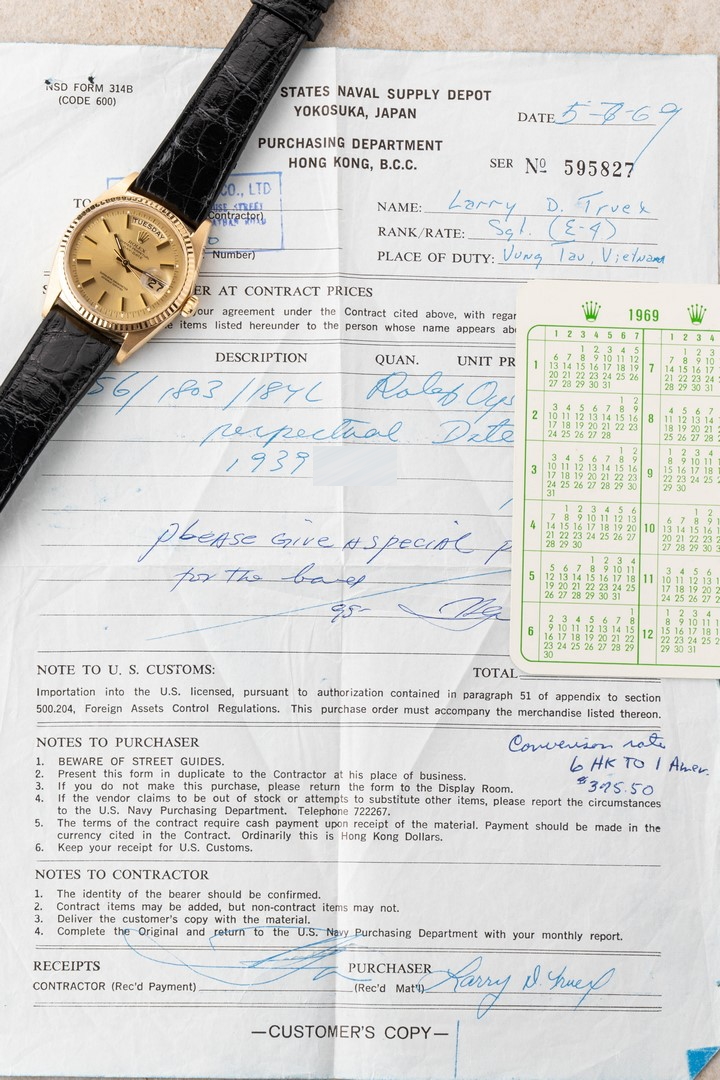 NSD FORM 314B
(CODE 600)
STATES NAVAL SUPPLY DEPOT
YOKOSUKA, JAPAN
DATE 5-7-69
PURCHASING DEPARTMENT
HONG KONG, B.C.C.
SER No 595827
TO
CO., LTD
Contractor)
Number)
NAME: Larry D. Truex
RANK/RATE: Sgt. (E-4)
PLACE OF DUTY: Vung Tau, Vietnam
TUESDAY
ROLEX
ER AT CONTRACT PRICES
your agreement under the Contract cited above, with regar
items listed hereunder to the person whose name appears abo
DESCRIPTION QUAN. UNIT PR
56/1803/1876 Rolex Oys
perpectual Date
1939
please Give A special p
for the
NOTE TO U. S. CUSTOMS: TOTAL
Importation into the U.S. licensed, pursuant to authorization contained in paragraph 51 of appendix to section
500.204, Foreign Assets Control Regulations. This purchase order must accompany the merchandise listed thereon.
NOTES TO PURCHASER
1. BEWARE OF STREET GUIDES.
2. Present this form in duplicate to the Contractor at his place of business.
3. If you do not make this purchase, please return the form to the Display Room.
4. If the vendor claims to be out of stock or attempts to substitute other items, please report the circumstances
to the U.S. Navy Purchasing Department. Telephone 722267.
5. The terms of the contract require cash payment upon receipt of the material. Payment should be made in the
currency cited in the Contract. Ordinarily this is Hong Kong Dollars.
6. Keep your receipt for U.S. Customs.
Conversion rate
6 HK TO 1 Amer.
$325.50
NOTES TO CONTRACTOR
1. The identity of the bearer should be confirmed.
2. Contract items may be added, but non-contract items may not.
3. Deliver the customer's copy with the material.
4. Complete the Original and return to the U.S. Navy Purchasing Department with your monthly report.
RECEIPTS
CONTRACTOR (Rec'd Payment)
PURCHASER
(Rec'd Mat'l) Larry D. Truex
—CUSTOMER'S COPY—
1969
1 2 3 4 5 6 7 1 2 3 4
1
1 2 3 4 5
6 7 8 9 10 11 12
13 14 15 16 17 18 19
20 21 22 23 24 25 26
27 28 29 30 31
2
1 2
3 4 5 6 7 8 9
10 11 12 13 14 15 16
17 18 19 20 21 22 23
24 25 26 27 28
3
1 2
3 4 5 6 7 8 9
10 11 12 13 14 15 16
17 18 19 20 21 22 23
24 25 26 27 28 29 30
31
4
1 2 3 4 5 6
7 8 9 10 11 12 13
14 15 16 17 18 19 20
21 22 23 24 25 26 27
28 29 30
5
1 2 3 4
5 6 7 8 9 10 11
12 13 14 15 16 17 18
19 20 21 22 23 24 25
26 27 28 29 30 31
6
1
2 3 4 5 6 7 8
9 10 11 12 13 14 15
16 17 18 19 20 21 22
23 24 25 26 27 28 29
30
7
1 2 3
7 8 9 10
14 15 16 17
21 22 23 24
28 29 30 31
8
4 5 6 7
11 12 13 14
18 19 20 21
25 26 27 28
9
1 2 3 4
8 9 10 11
15 16 17 18
22 23 24 25
29 30
10
11
12